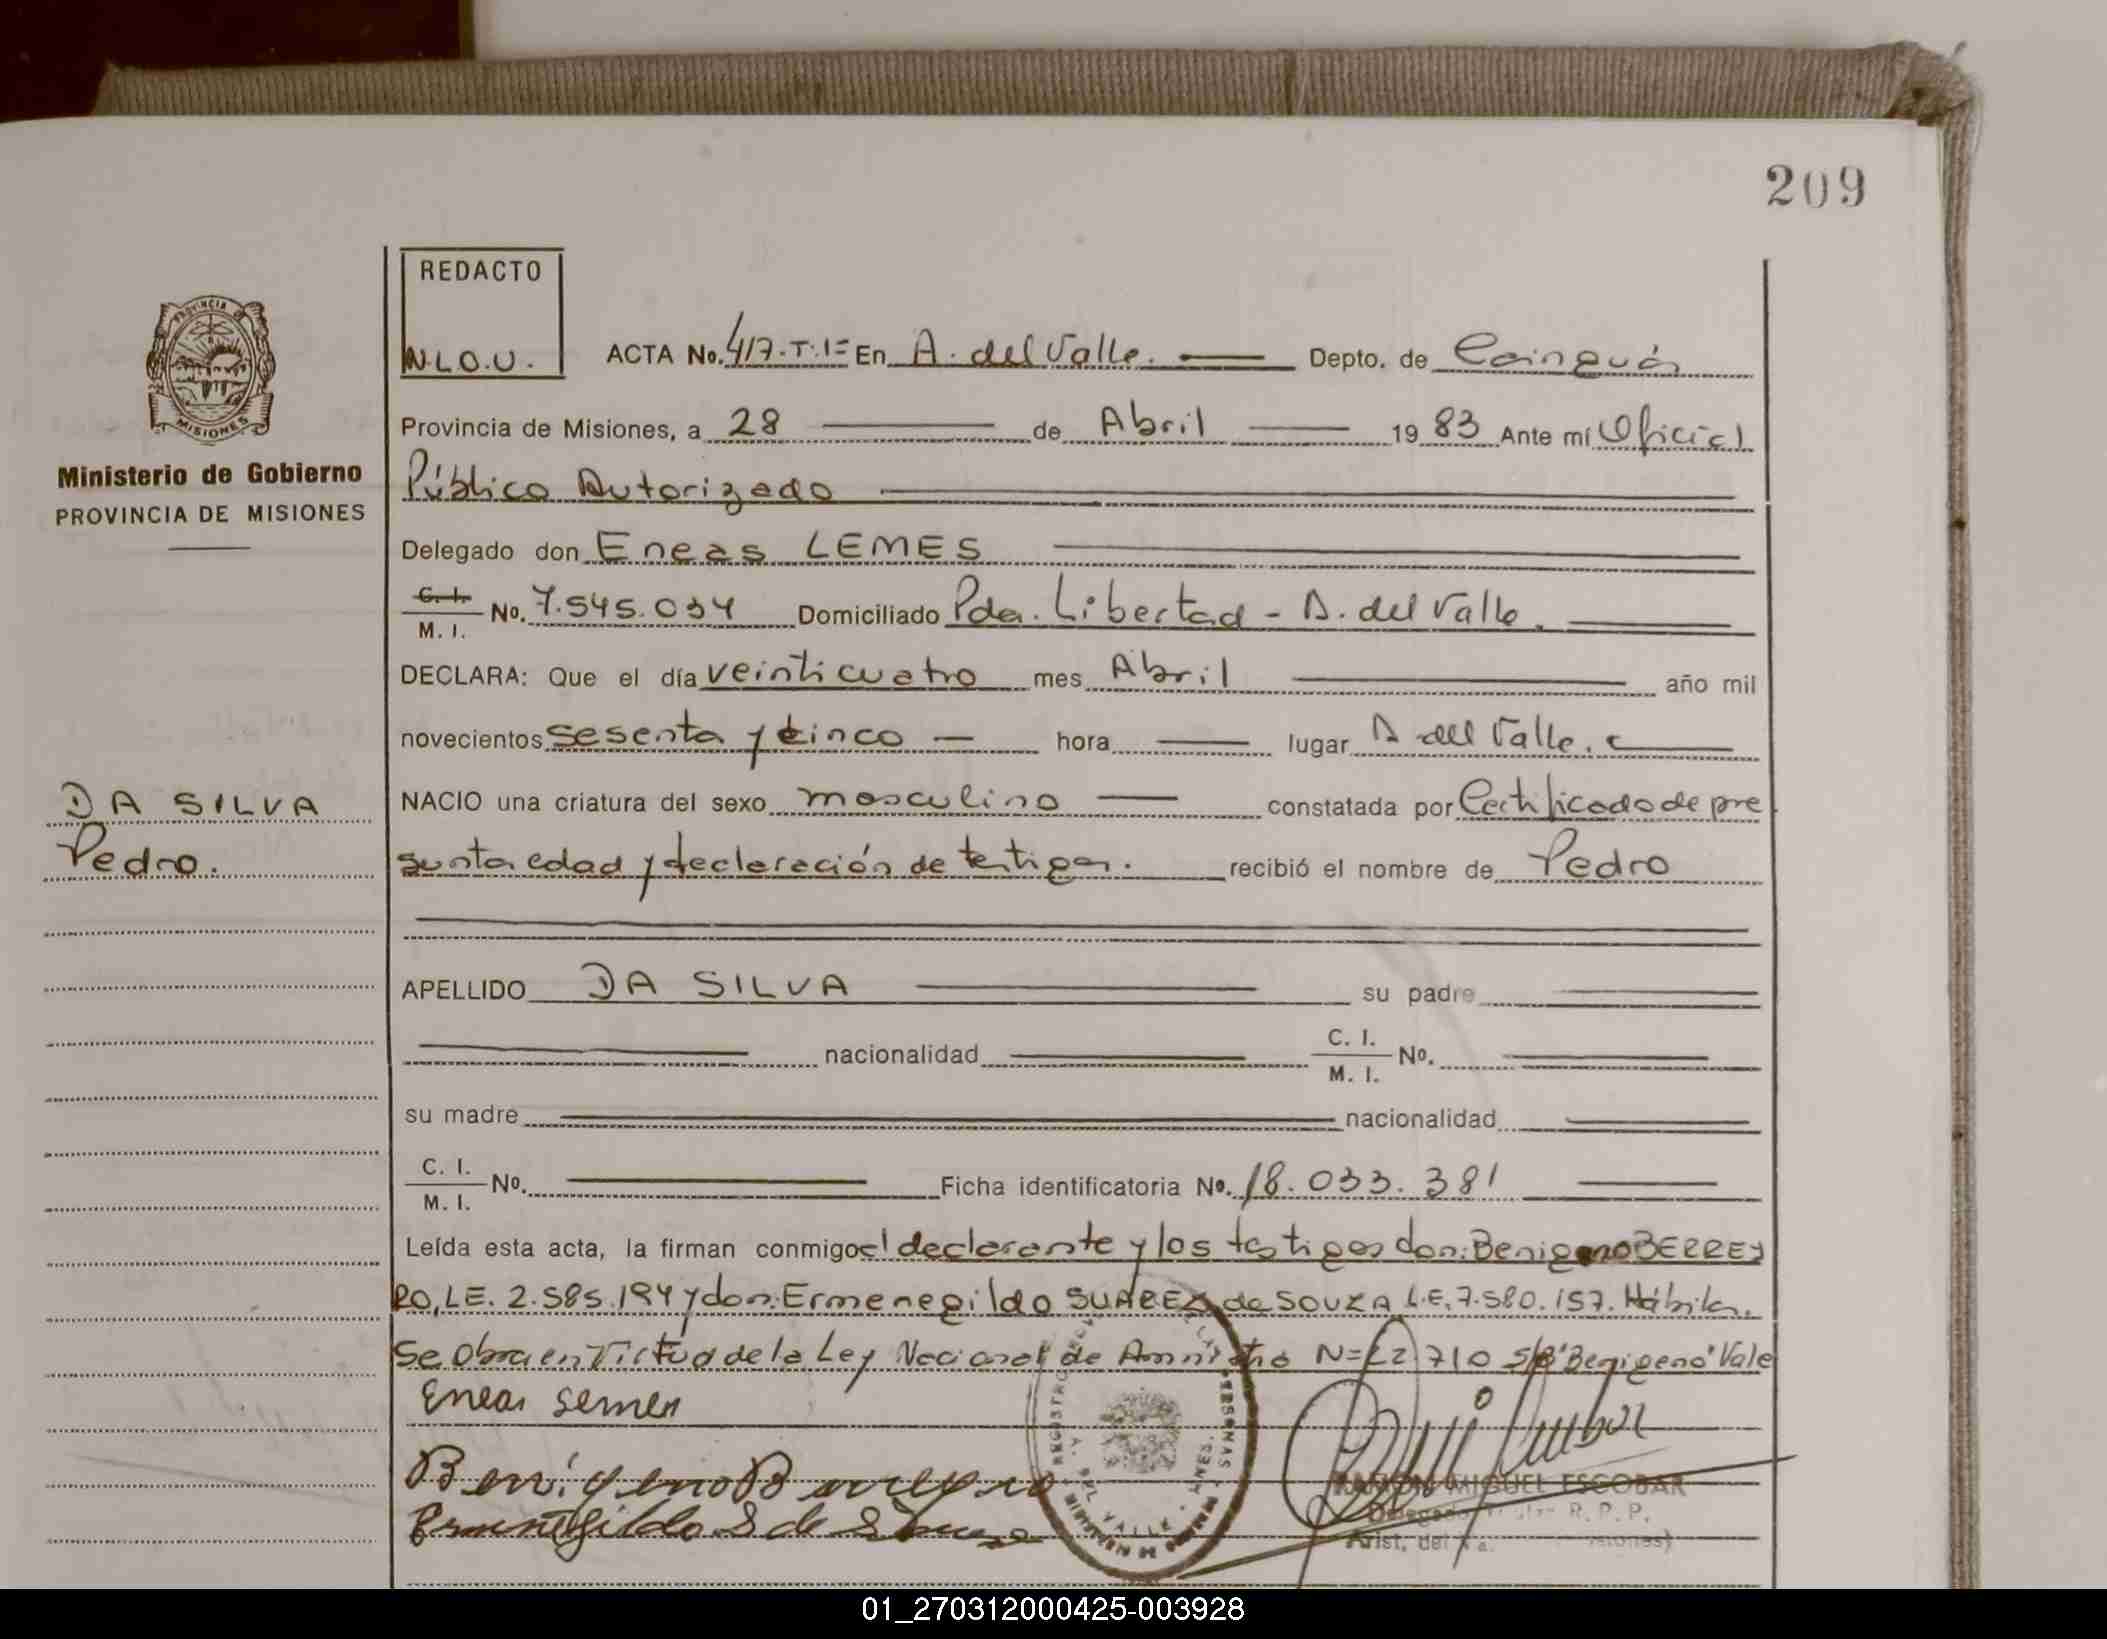 209
REDACTO
N.L.O.U.
ACTA No. 417.T:1= En A. del Valle. Depto. de Cainguás
Provincia de Misiones, a 28 de Abril 1983 Ante mí Oficial
Público Autorizado
Delegado don Eneas LEMES
C. I. M. I. No. 7.545.034 Domiciliado Pda. Libertad - A. del Valle.
DECLARA: Que el día veinticuatro mes Abril año mil
novecientos sesenta y cinco hora lugar A del Valle.
NACIO una criatura del sexo masculino constatada por Certificado de pre
sunta edad y declaración de testigos. recibió el nombre de Pedro
APELLIDO DA SILVA su padre
nacionalidad C. I. M. I. No.
su madre nacionalidad
C. I. M. I. No. Ficha identificatoria No. 18.033.381
Leída esta acta, la firman conmigo el declarante y los testigos don: Benigeno BERREY
RO, LE. 2.585.194 y don: Ermenegildo SUAREZ de SOUZA L.E. 7.580.157. Hábiles.
Se Obra en Virtud de la Ley Nacional de Amnistia N= 22710 S/B "Benigeno" Vale
Eneas Lemes
Benigeno Berreyro
Ermenegildo S de Souza
RAMON MIGUEL ESCOBAR
R. P. P.
Arist. del
PROVINCIA
MISIONES
Ministerio de Gobierno
PROVINCIA DE MISIONES
DA SILVA
Pedro.
01_270312000425-003928